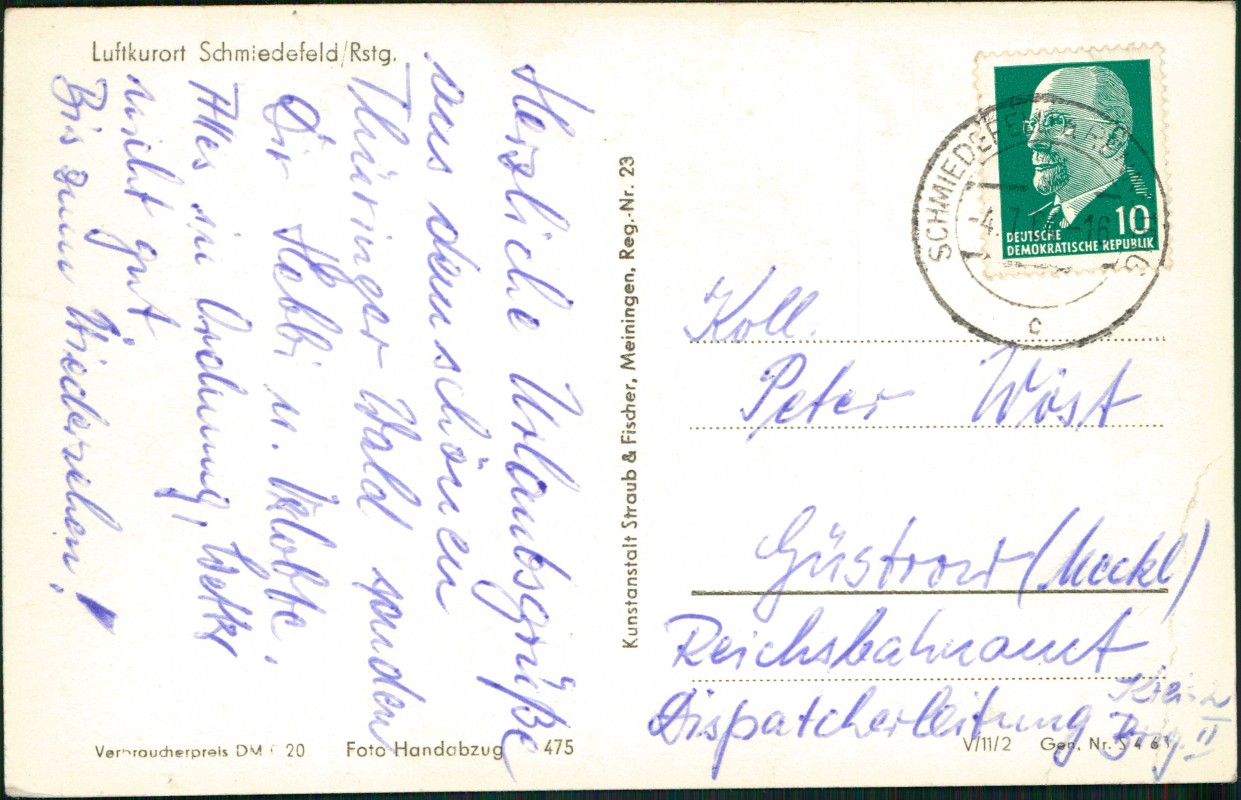 Luftkurort Schmiedefeld/Rstg.
Herzliche Urlaubsgrüße
aus dem schönen
Thüringer Wald senden
Dir Hebbi u. Klobbe.
Alles in Ordnung, Wetter
nicht gut
Bis zum Wiedersehen!
Verbraucherpreis DM 0.20
Foto Handabzug
475
Kunstanstalt Straub & Fischer, Meiningen, Reg.-Nr. 23
10
DEUTSCHE
DEMOKRATISCHE REPUBLIK
SCHMIEDEFELD
-4.7. -16
c
Koll.
Peter Wöst
Güstrow (Meckl)
Reichsbahnamt
Dispatcherleitung
V/11/2 Gen. Nr.